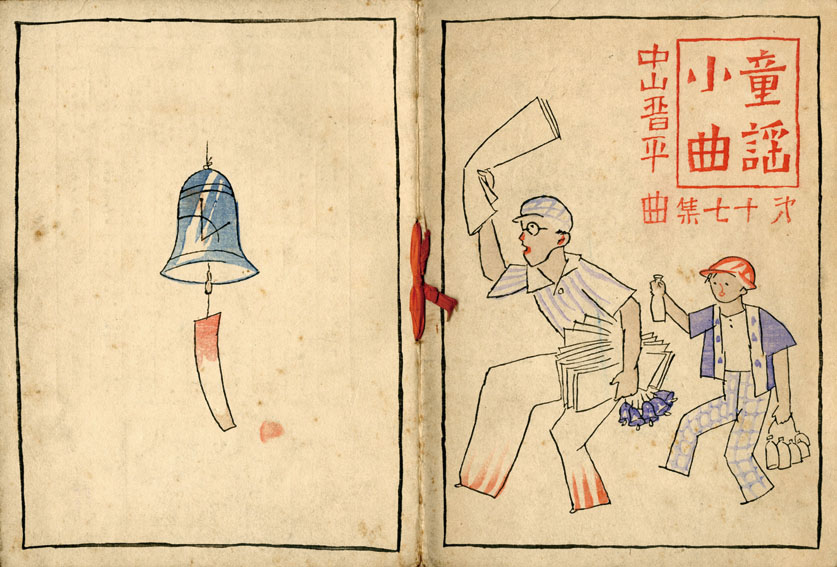 童謡
小曲
㐧十七集
中山晋平曲